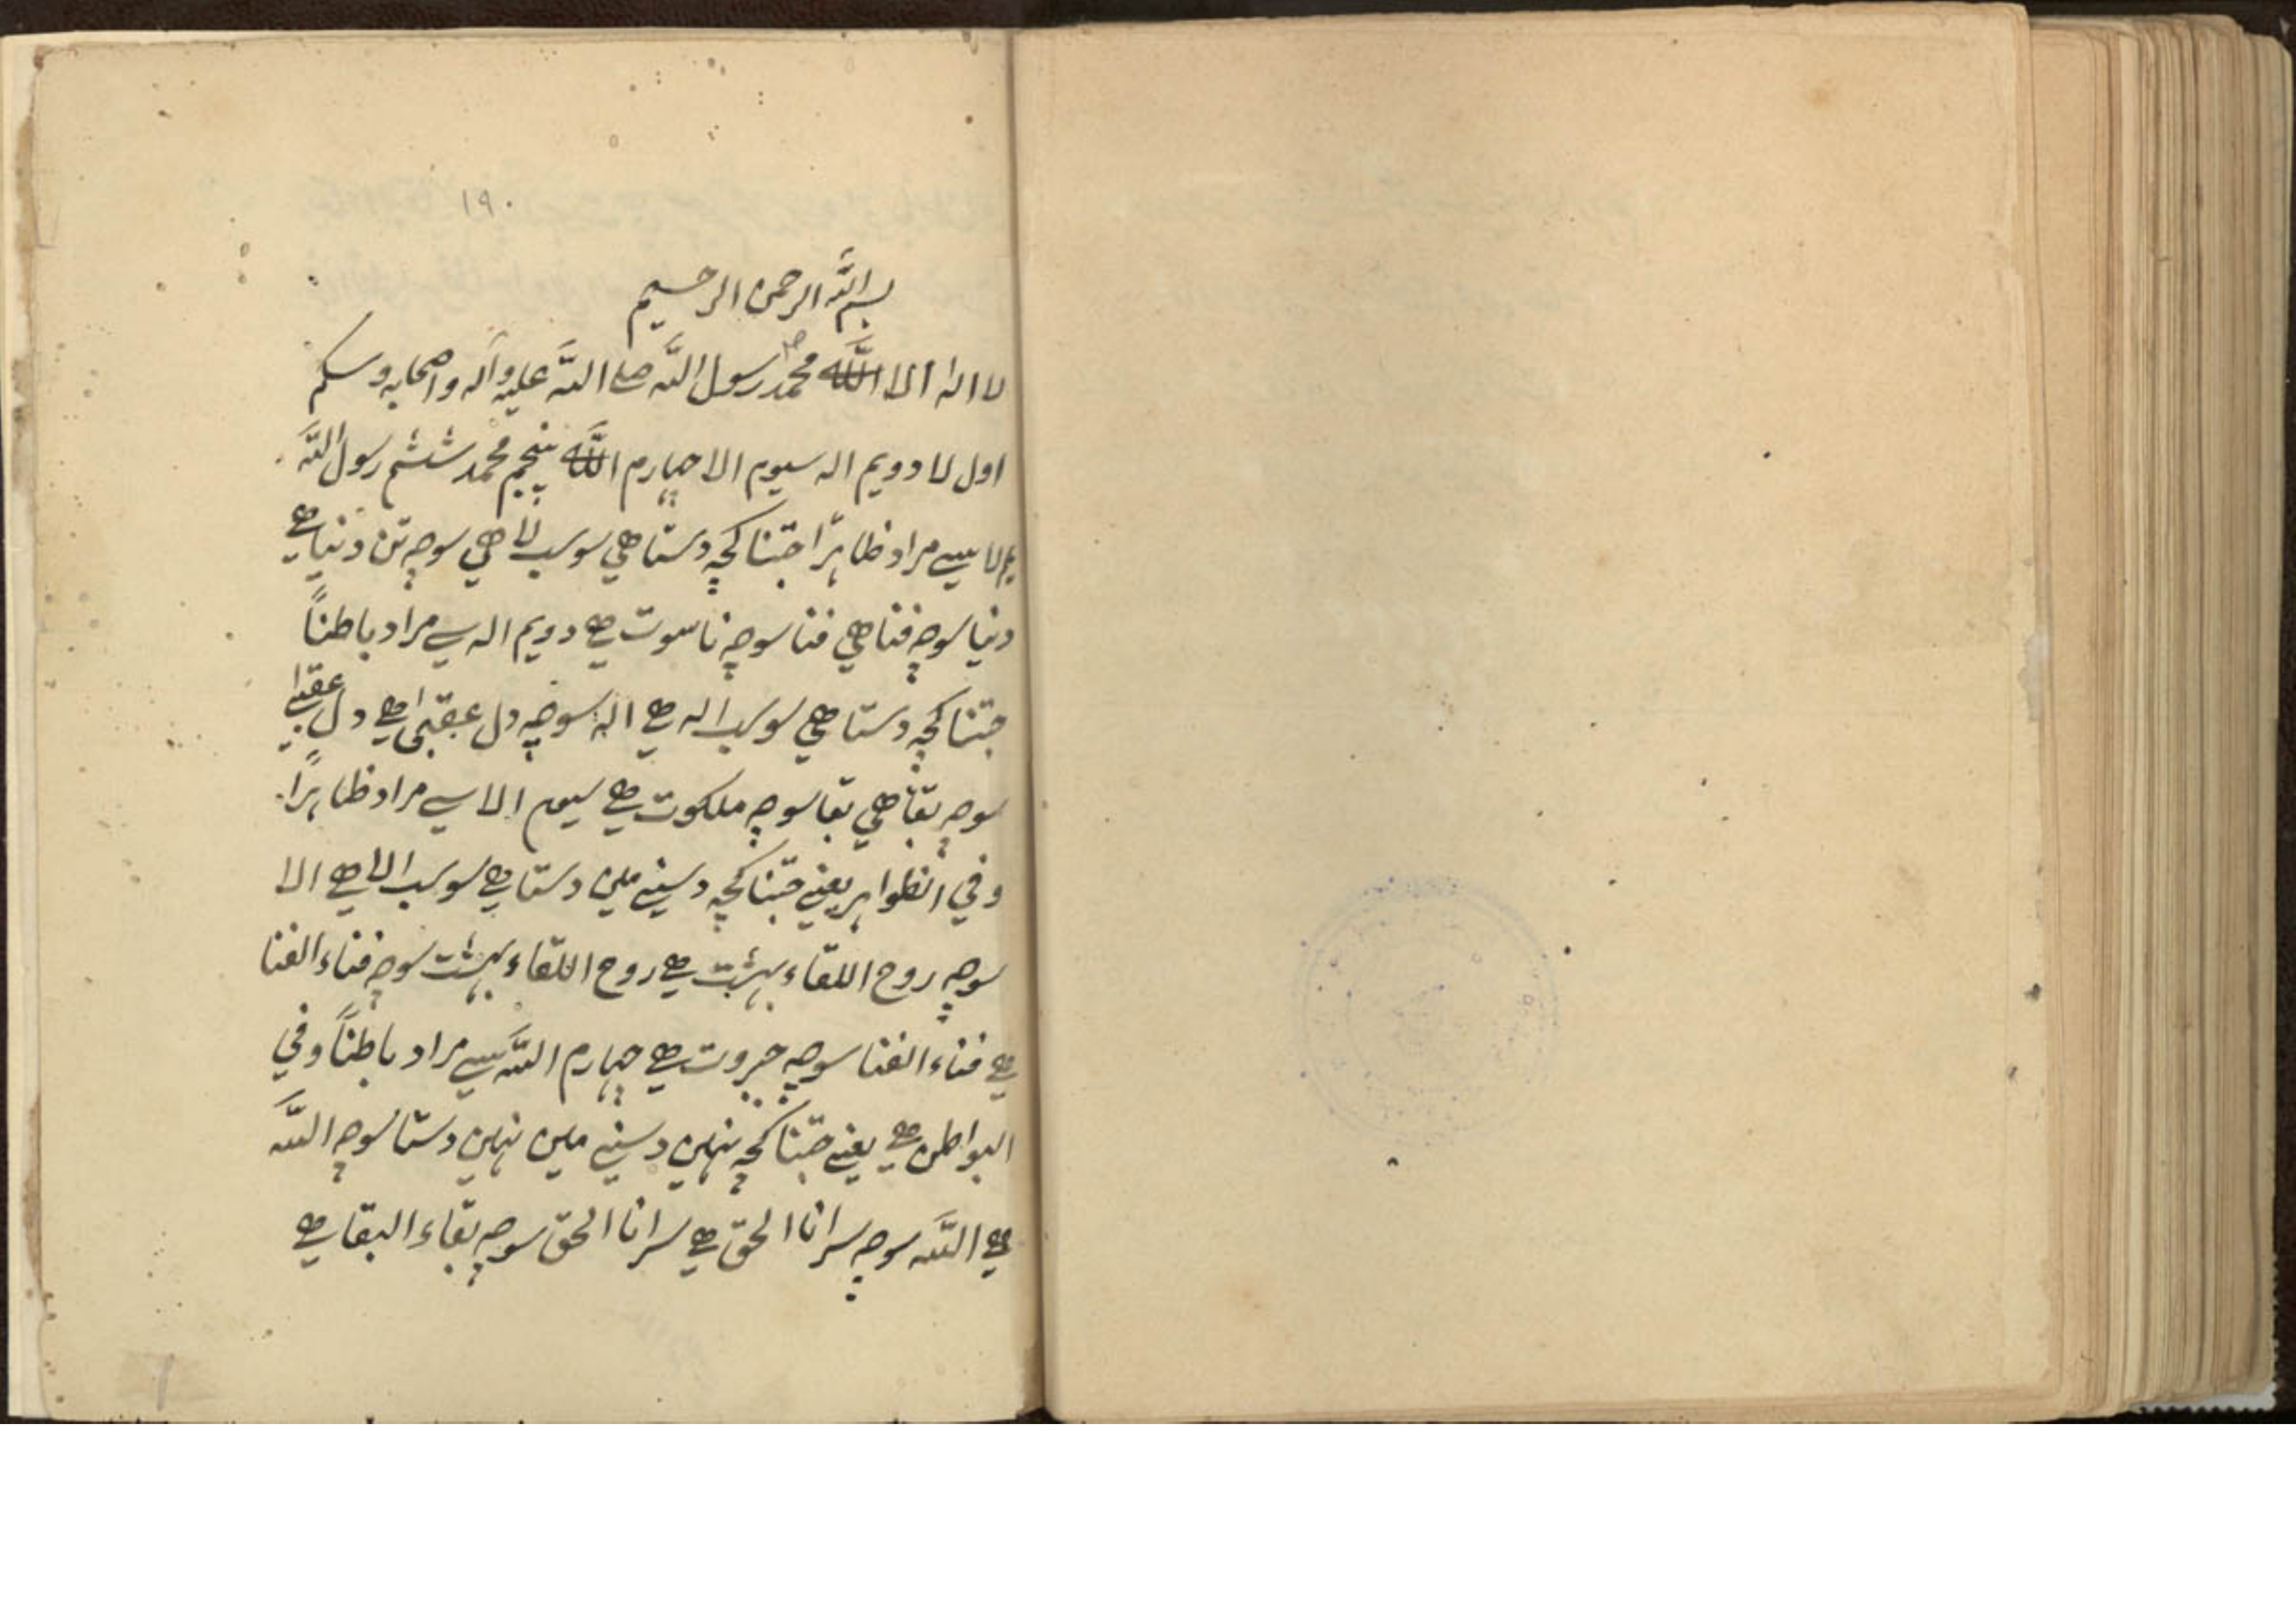 ۱۹۰
بسم الله الرحمن الرحیم
لا اله الا الله محمد رسول الله صلے الله علیه وآله واصحابه وسلم
اول لا دویم اله سیوم الا چہارم الله پنجم محمد ششم رسول الله
لا سیے مراد ظاہراً جتنا کچہ دستا هی سو سب لا هی سوچه تن دنیا هے
دنیا سوچه فنا هی فنا سوچه ناسوت هے دویم اله سے مراد باطناً
جتنا کچہ دستا هی سو سب اله هے اله سوچه دل عقبیٰ هے دل عقبیٰ
سوچه بقا هی بقا سوچه ملکوت هے سیوم الا سے مراد ظاہراً
وفي الظواہر یعنے جتنا کچہ دسنے ملین دستا هے سو سب الا هے الا
سوچه روح اللقاء بہشت هے روح اللقاء بہشت سوچه فناء الفنا
هے فناء الفنا سوچه جبروت هے چہارم الله سیے مراد باطناً وفي
البواطن هے یعنے جتنا کچہ نہلین دسنے ملین نہلین دستا سوچه الله
هے الله سوچه سر انا الحق هے سر انا الحق سوچه بقاء البقا هے